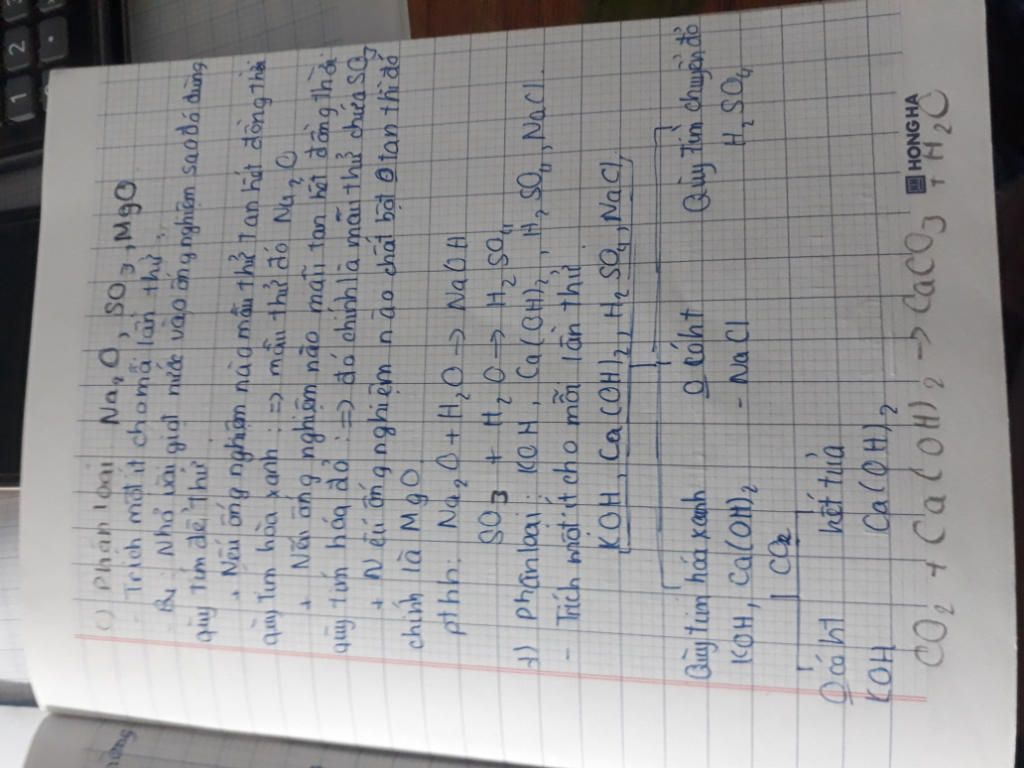 c) Phân loại Na2O, SO3, MgO
- Trích mỗi ít cho mỗi lần thử
- Nhỏ vài giọt nước vào ống nghiệm sao đó dùng
quỳ tím để thử
+ Nếu ống nghiệm nào mẫu thử tan hết đồng thời
quỳ tím hòa xanh: => mẫu thử đó Na2O
+ Nếu ống nghiệm nào mẫu tan hết đồng thời
quỳ tím hóa đỏ: => đó chính là mẫu thử chứa SO3
+ Nếu ống nghiệm nào chất bột 0 tan thì đó
chính là MgO
pthh: Na2O + H2O → NaOH
SO3 + H2O → H2SO4
d) Phân loại: KOH, Ca(OH)2, H2SO4, NaCl.
- Trích một ít cho mỗi lần thử
KOH, Ca(OH)2, H2SO4, NaCl,
Qùy tím hóa xanh 0 có ht Qùy tím chuyển đỏ
KOH, Ca(OH)2 - NaCl H2SO4
CO2
0 có ht kết tủa
KOH Ca(OH)2
HONG HA
CO2 + Ca(OH)2 → CaCO3 + H2O
1 2